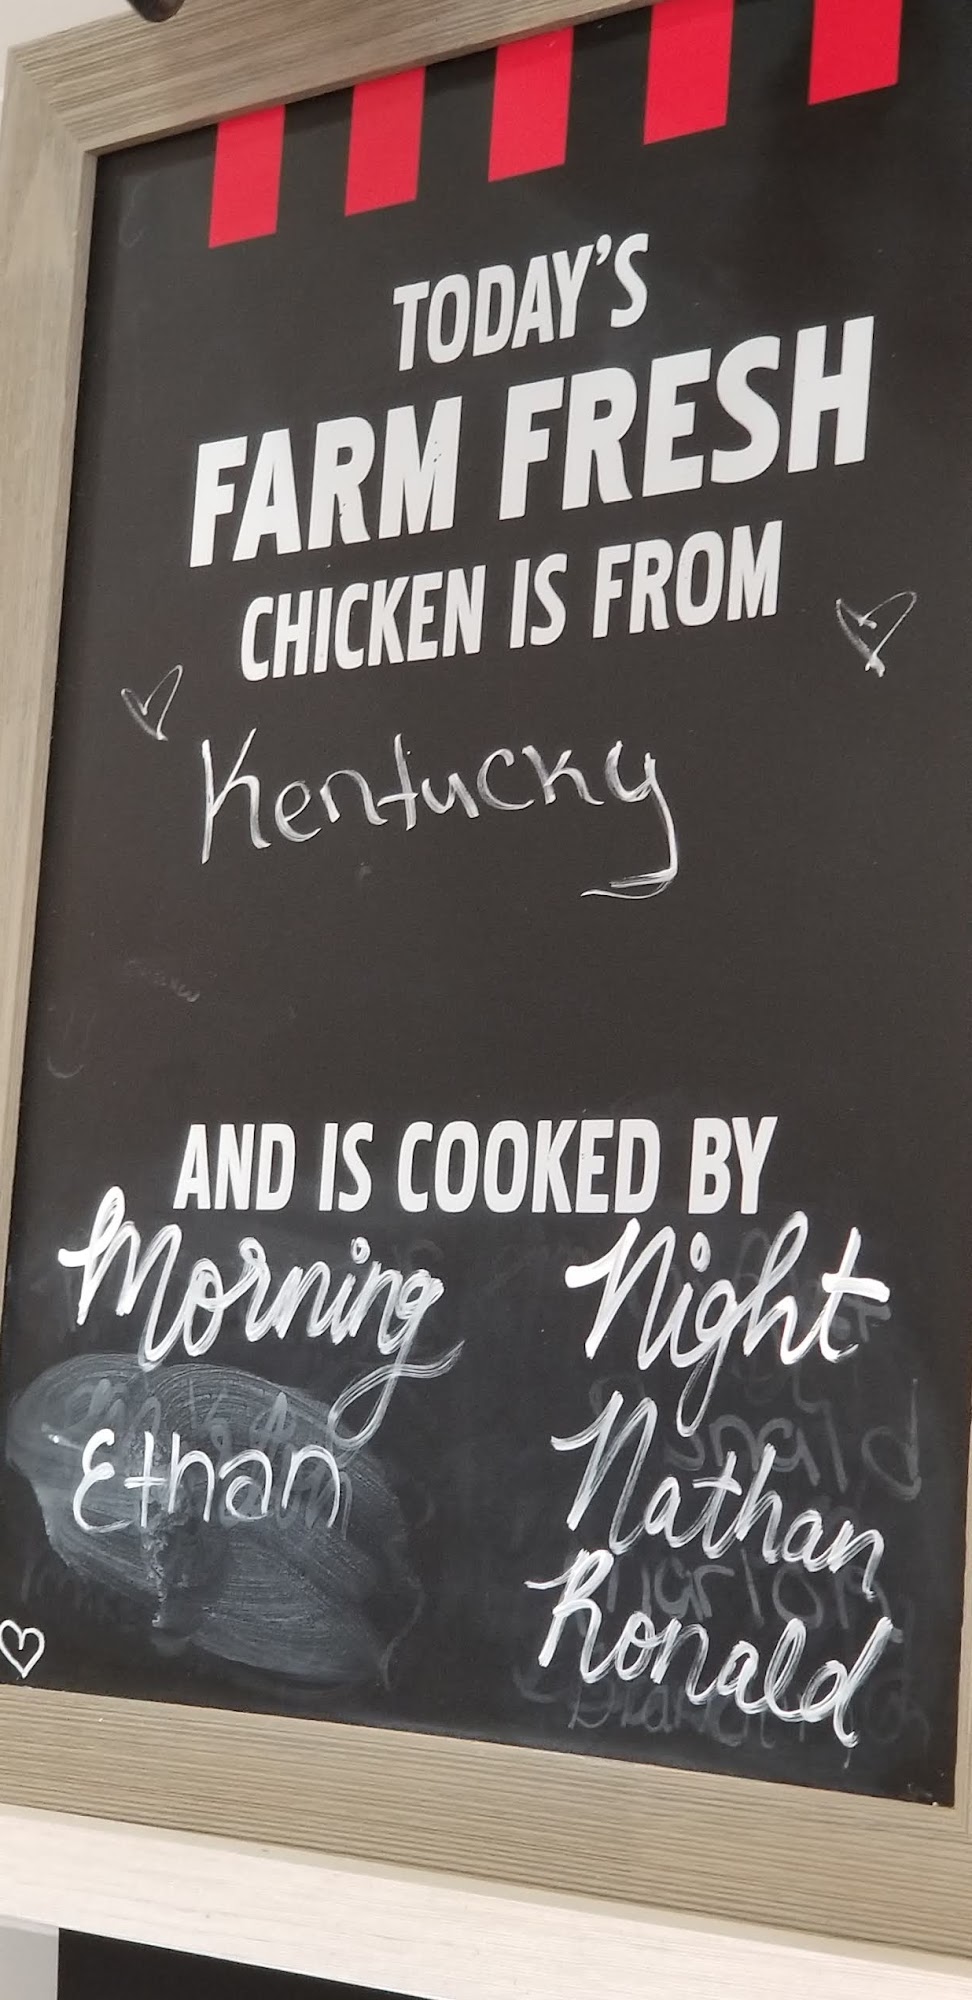 TODAY'S
FARM FRESH
CHICKEN IS FROM
Kentucky
AND IS COOKED BY
Morning Night
Ethan Nathan
Ronald